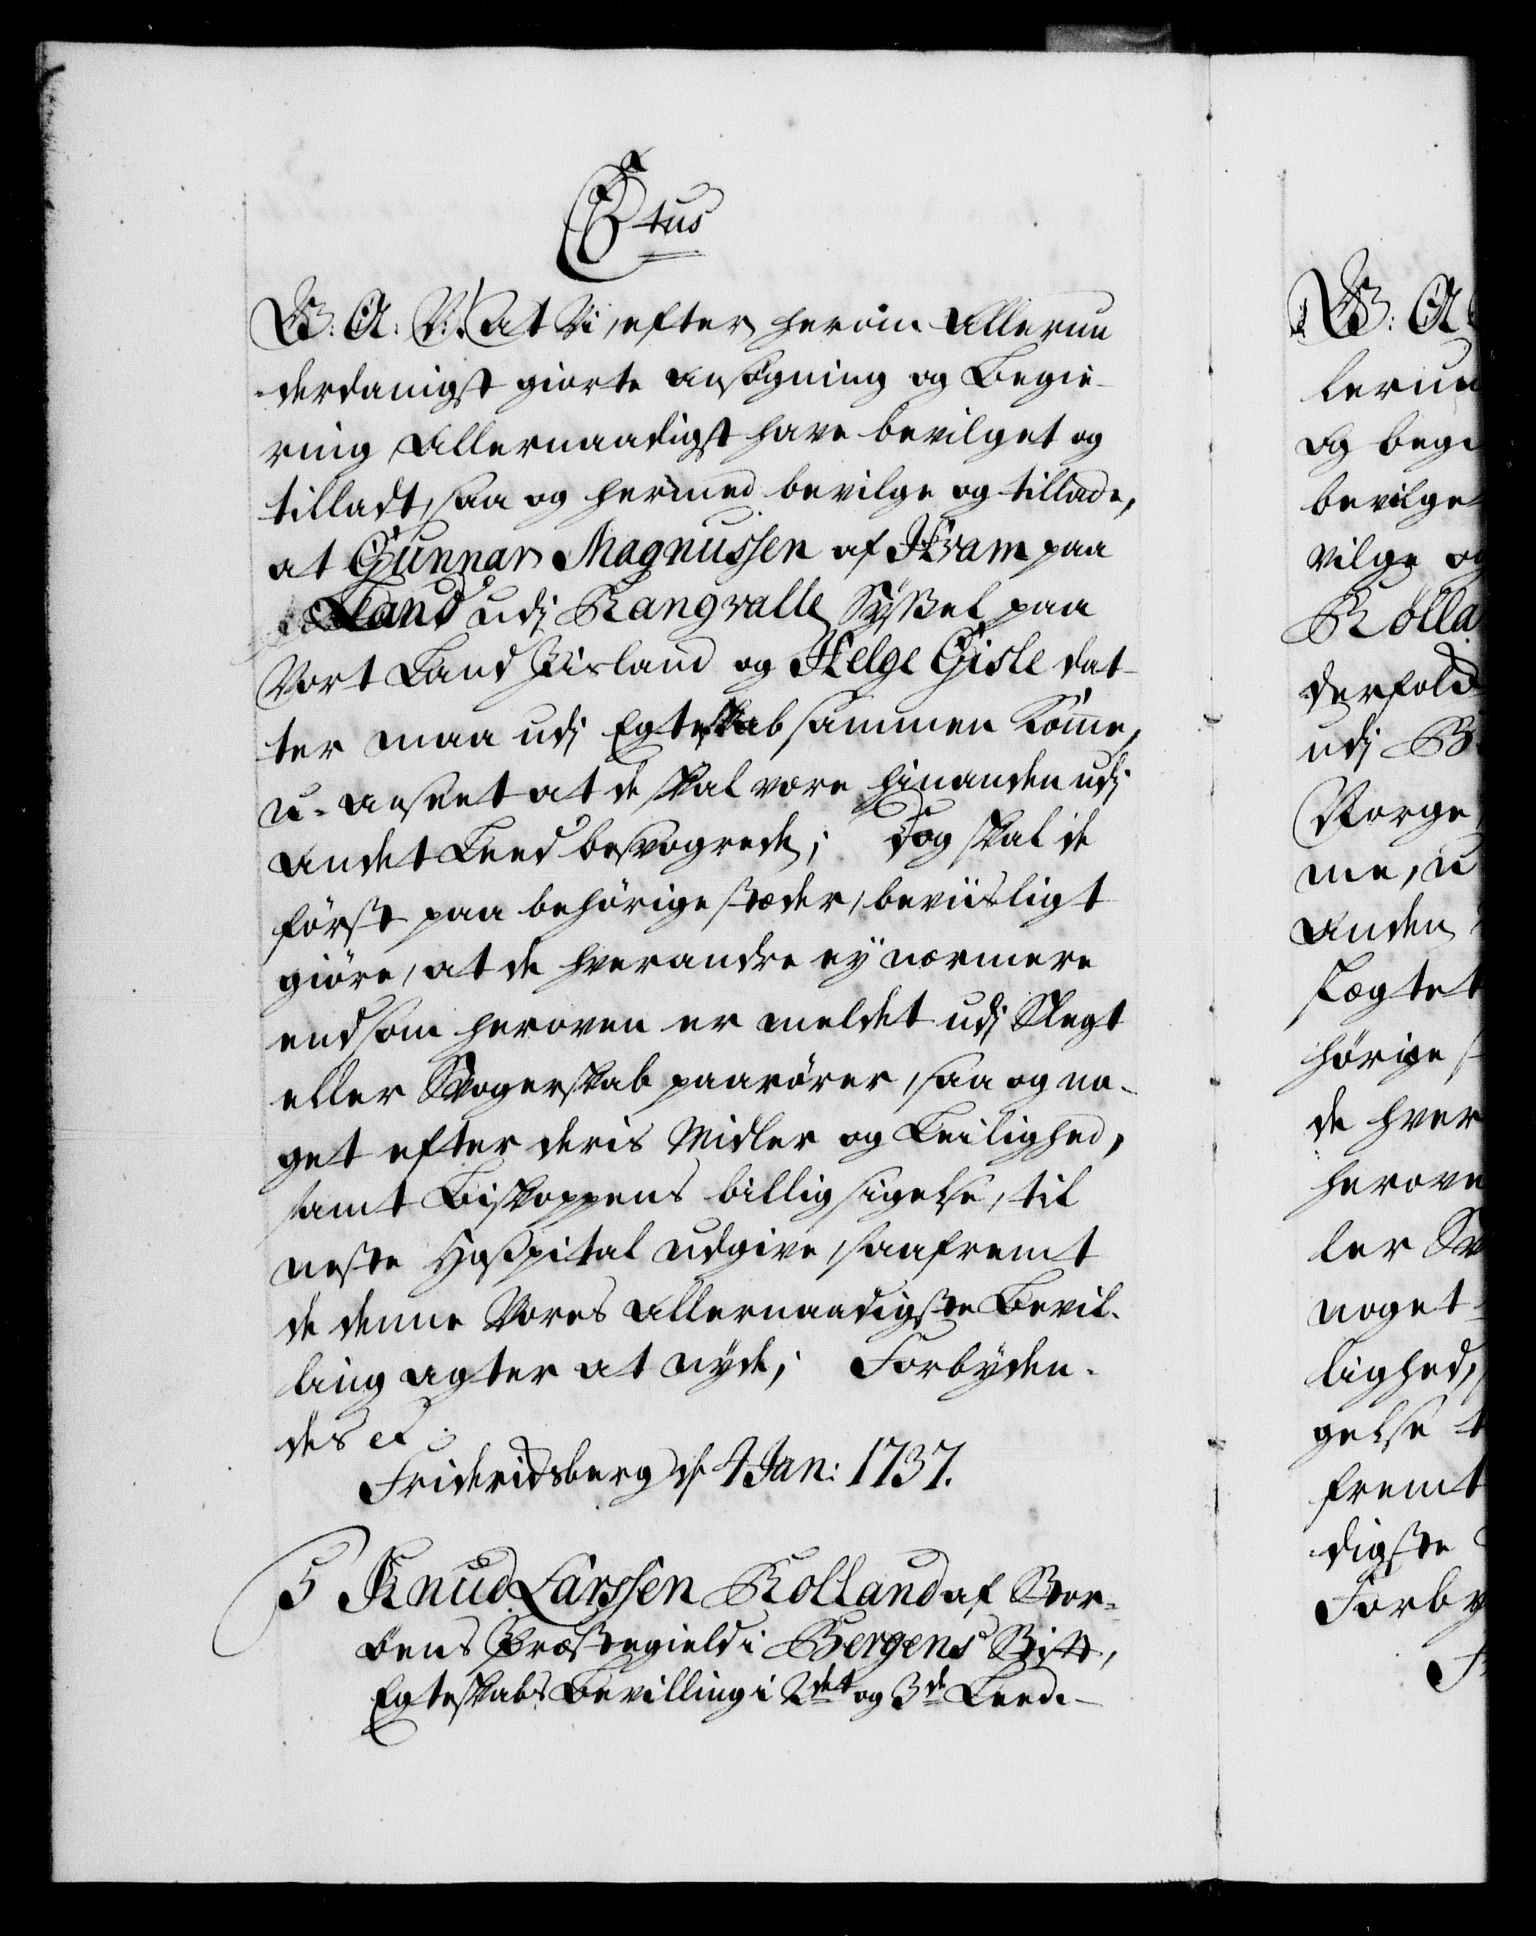 C6tus
G: A: V: at Vi, efter herom allerun
derdanigst giorte ansøgning og begie-
ring allernaadigst have bevilget og
tilladt, saa og hermed bevilge og tillade,
at Gunnar Magnussen af Hvam paa
Land udi Rangvalle Syssel paa
Vort Land Jisland og Helge Gisle dat-
ter maa udi Egteskab sammen komme,
u-anseet at de skal være hinanden udi
andet Leed besvogrede; dog skal de
først paa behörige stæder, beviisligt
giöre, at de hverandre ey nærmere
end som heroven er meldet udi Slegt
eller Svogerskab paarörer, saa og no-
get efter deris Midler og Leilighed,
samt Biskoppens billigsigelse, til
neste Hospital udgive, saafremt
de denne Vores allernaadigste Bevil-
ling agter at nyde; Forbyden-
des etc:
Frideridsberg d. 4 Jan: 1737.
5 Knud Larssen Rolland af Stor-
öens Præstegield i Bergens Stift,
Egteskabs Bevilling i 2det og 3de Leed.
G: A
lerun
og begi
bevilget
vilge og
Rolla
derfold
udi B
Norge
me, u
anden
slægtet
hörige s
de hver
herove
ler Sv
noget
lighed,
gelse t
fremt
digste
Forby
F